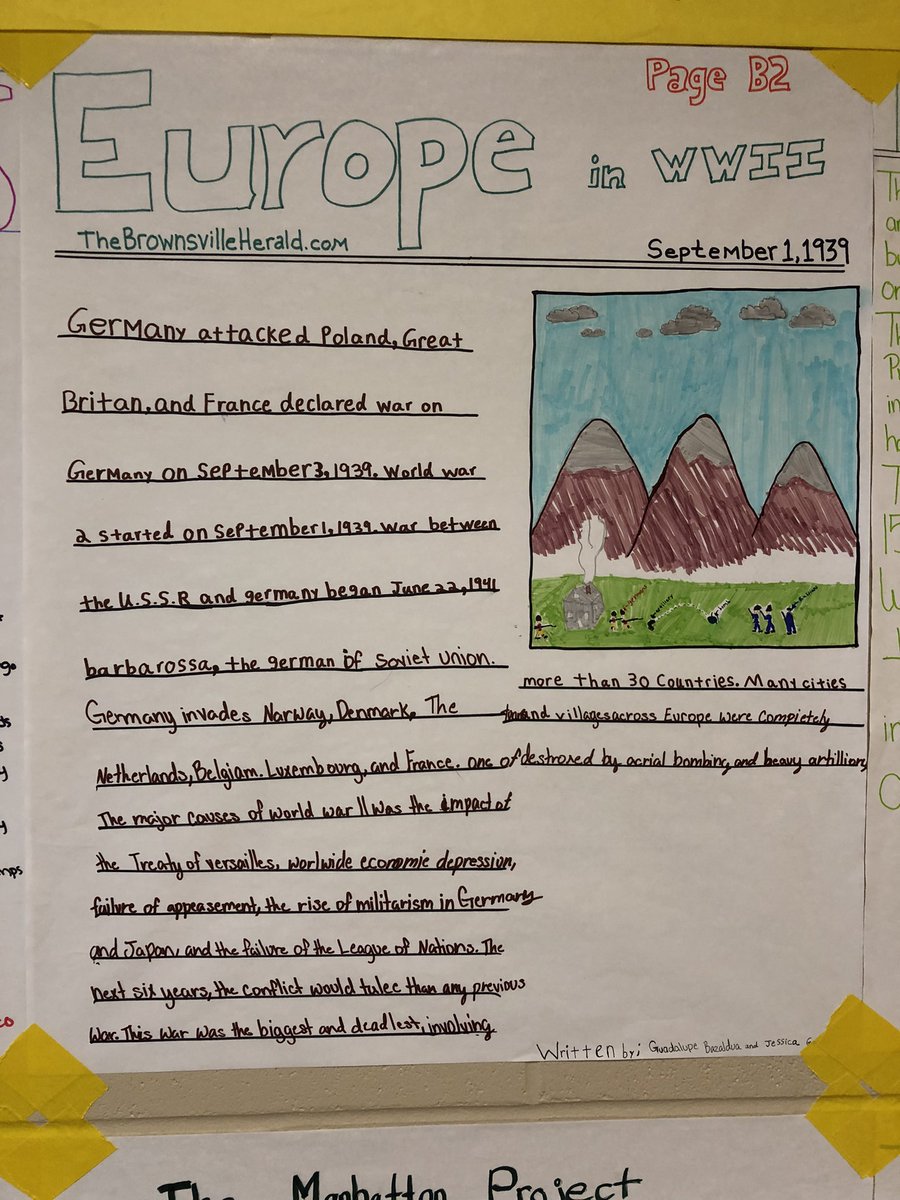 Page B2
Europe in WWII
TheBrownsvilleHerald.com
September 1, 1939
Germany attacked Poland, Great
Britan, and France declared war on
Germany on September 3, 1939. World war
2 started on September 1, 1939. War between
the U.S.S.R and germany began June 22, 1941
barbarossa, the german of Soviet union.
Germany invades Norway, Denmark, The
Netherlands, Belgiam. Luxembourg, and France. one of
The major causes of world war II was the impact of
the Treaty of versailles, worlwide economic depression,
failure of appeasement, the rise of militarism in Germany
and Japan, and the failure of the League of Nations. The
next six years, the conflict would tulee than any previous
war. This war was the biggest and deadlest, involving
more than 30 Countries. Many cities
and villages across Europe were completely
destroxed by acrial bombing, and heavy artillion,
Written by; Guadalupe Bazaldua and Jessica G
The Manhattan Project